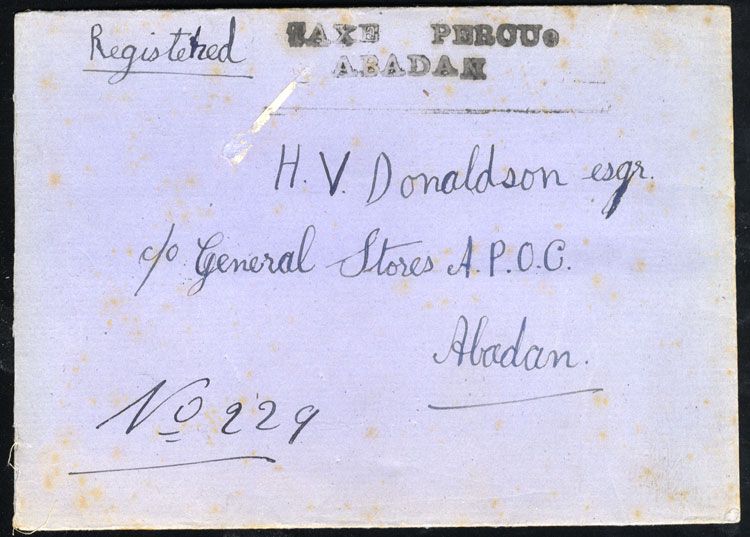 Registered
TAXE PERCUe
ABADAN
H. V. Donaldson esqr.
c/o General Stores A.P.O.C.
Abadan.
No 229